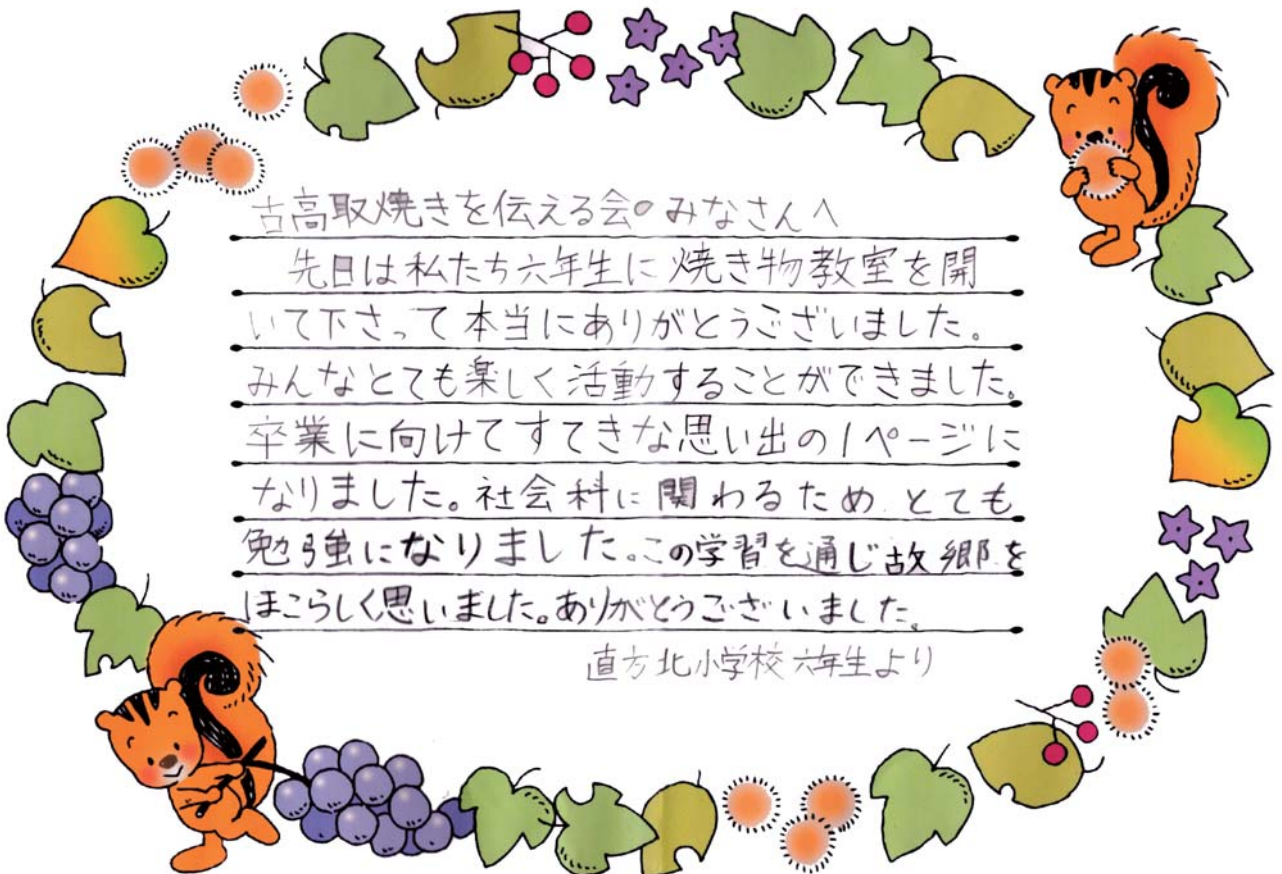 古高取焼きを伝える会のみなさんへ
先日は私たち六年生に焼き物教室を開
いて下さって本当にありがとうございました。
みんなとても楽しく活動することができました。
卒業に向けてすてきな思い出の1ページに
なりました。社会科に関わるため、とても
勉強になりました。この学習を通じ故郷を
ほこらしく思いました。ありがとうございました。
直方北小学校六年生より